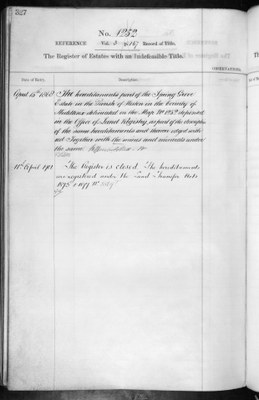 327
No. 1252
REFERENCE Vol. 3 p. 187 Record of Title.
The Register of Estates with an Indefeasible Title.
Date of Entry. Description.
OBSERVATIONS.
April 15th 1868 The hereditaments part of the Spring Grove
Estate in the Parish of Heston in the County of
Middlesex delineated on the Map No. deposited
in the Office of Land Registry, as part of the description
of the same hereditaments and thereon edged with
red Together with the mines and minerals under
the same
11th April 1901 The Register is closed. The hereditaments
are registered under the Land Transfer Acts
1875 & 1897 No.